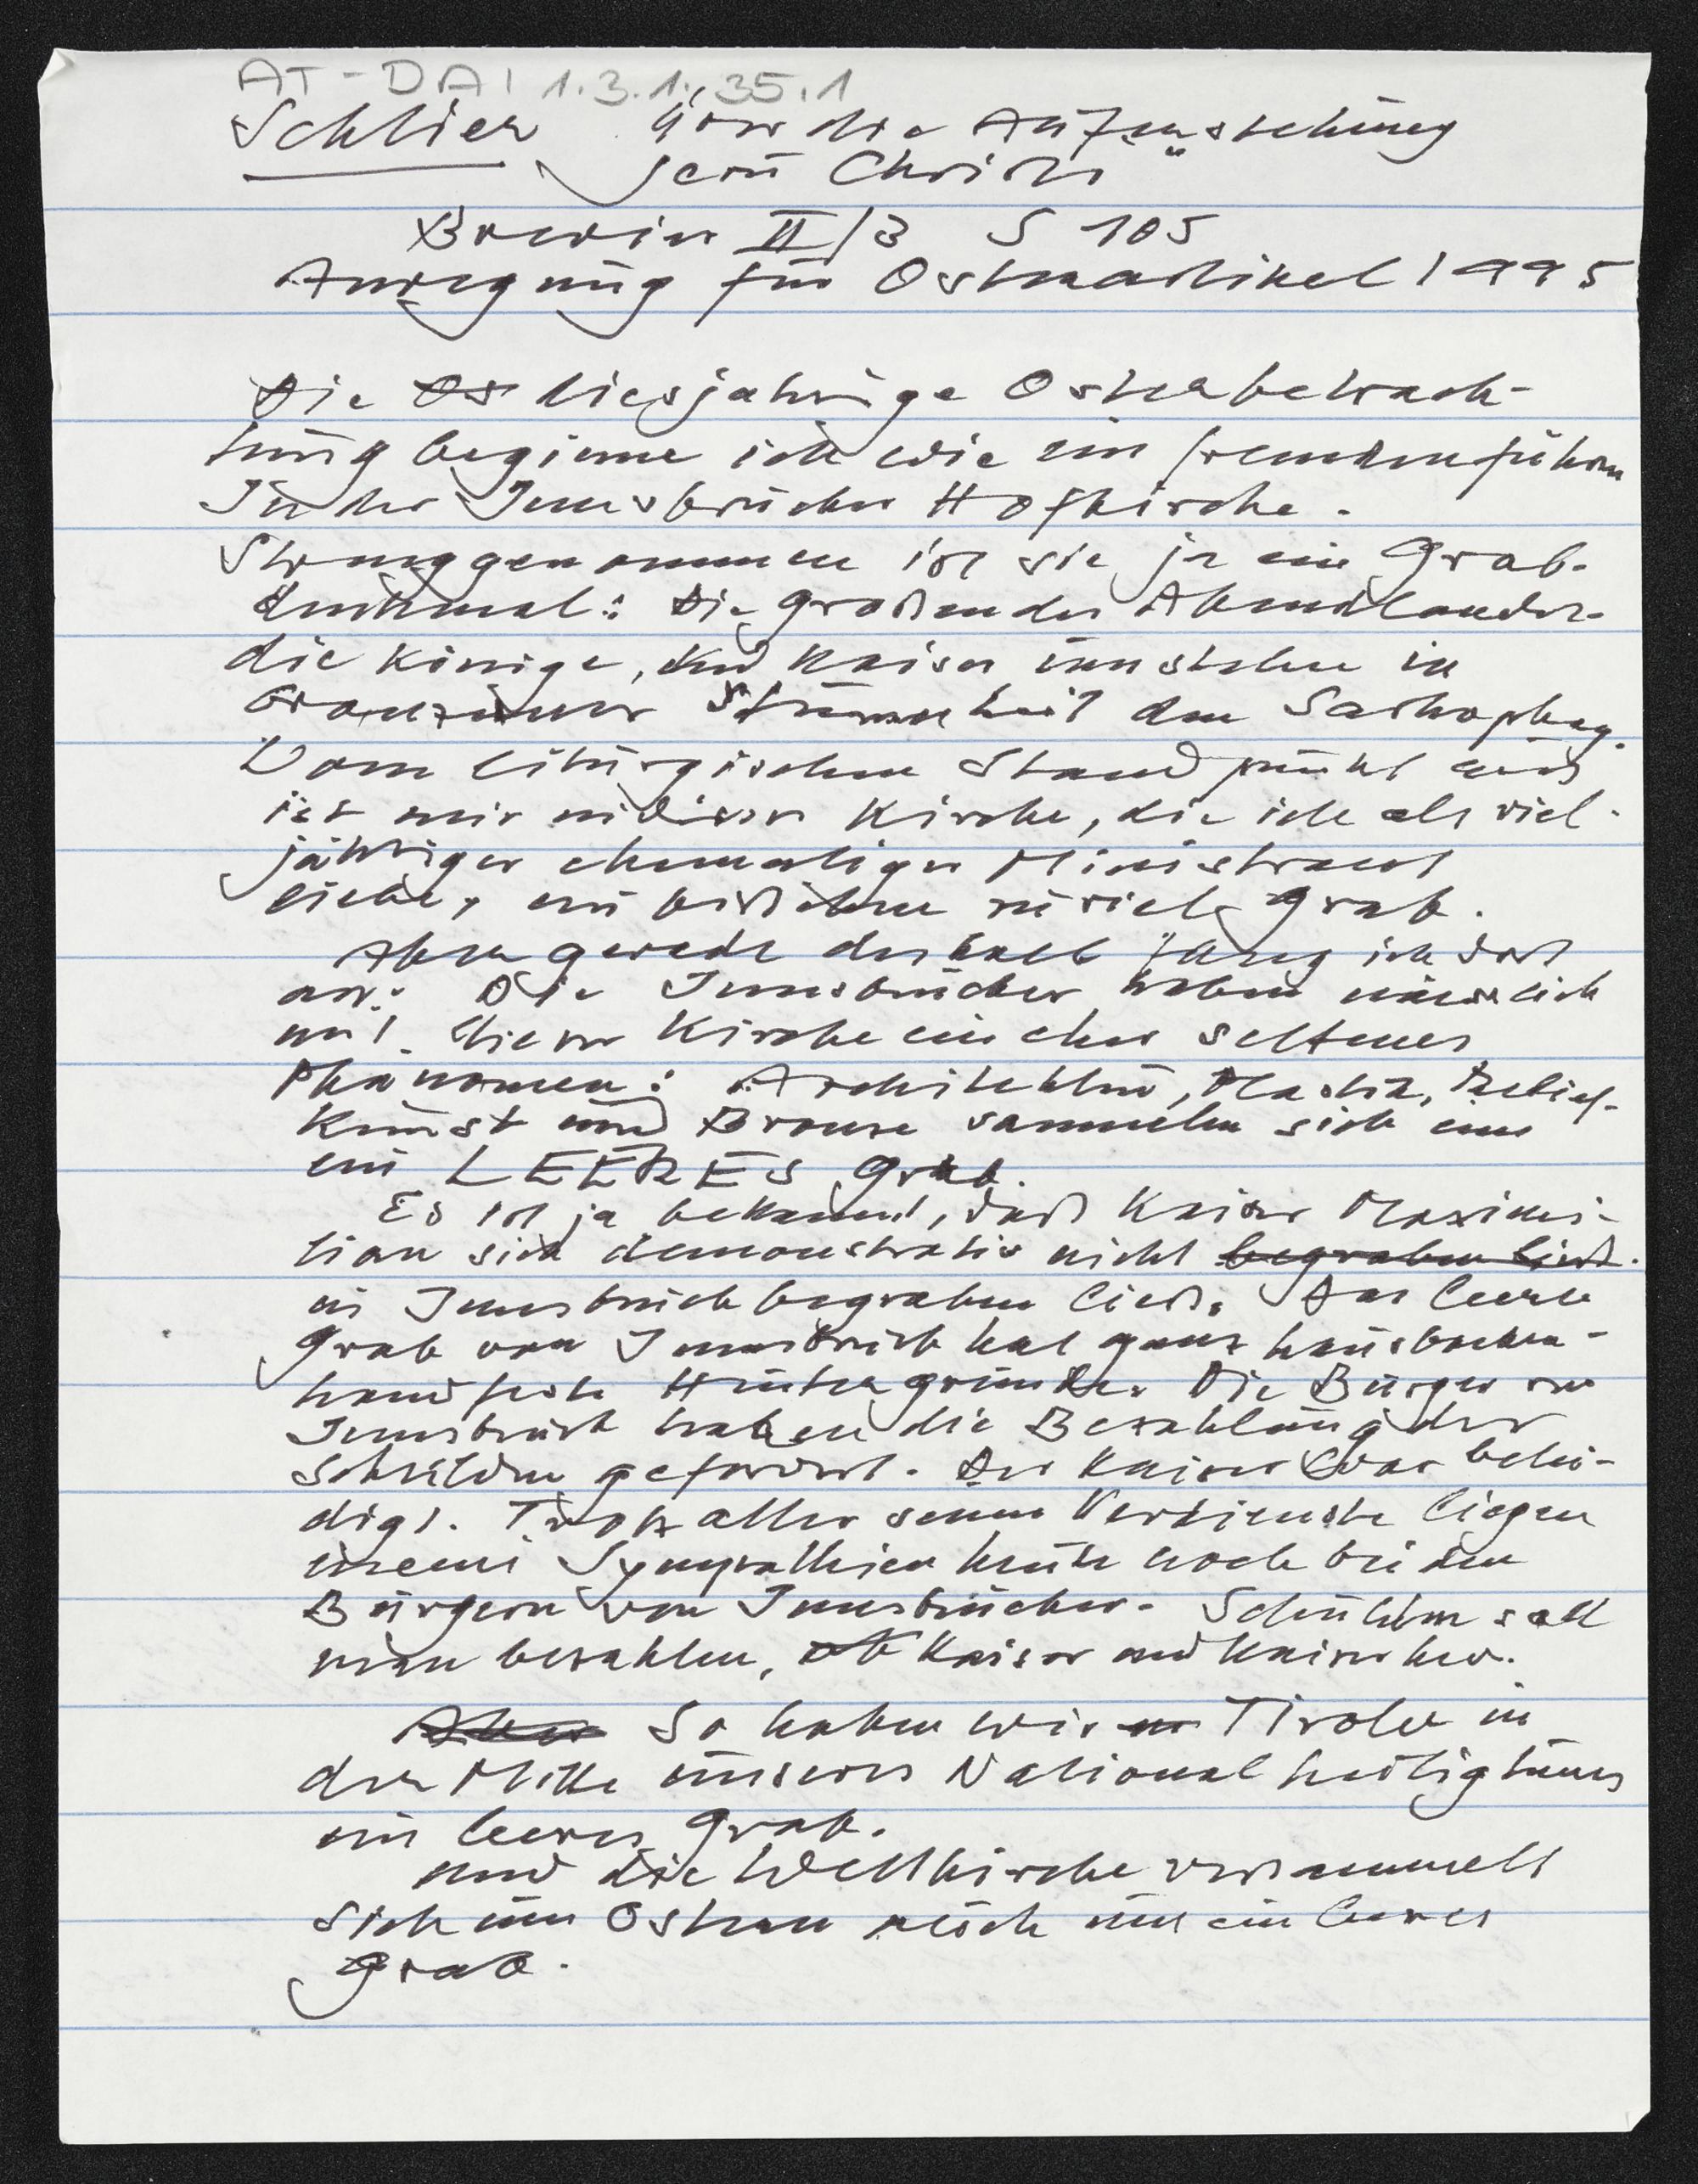 AT-DAI 1.3.1.,35.1
Schlier "Über die Auferstehung
Jesu Christi"
Brevier II/3 S 105
Anregung für Osterartikel 1995
Die Os diesjährige Osterbetrach-
tung beginne ich wie ein Fremdenführer
In der Innsbrucker Hofkirche.
Strenggenommen ist sie ja ein Grab-
denkmal: Die Großen des Abendlandes-
die Könige, der Kaiser umstehen in
bronzener Stummheit den Sarkophag.
Vom liturgischen Standpunkt aus
ist mir in dieser Kirche, die ich als viel-
jähriger ehemaliger Ministrant
liebe, ein bißchen zuviel Grab.
Aber gerade deshalb fang ich dort
an: Die Innsbrucker haben nämlich
mit dieser Kirche ein eher seltenes
Phänomen: Architektur, Plastik, Relief-
kunst und Bronze sammeln sich um
ein LEERES Grab.
Es ist ja bekannt, daß Kaiser Maximi-
lian sich demonstrativ nicht begraben ließ.
in Innsbruck begraben ließ. Das leere
Grab von Innsbruck hat ganz hausbacken-
handfeste Hintergründe. Die Bürger von
Innsbruck haben die Bezahlung der
Schulden gefordert. Der Kaiser war belei-
digt. Trotz aller seiner Verdienste liegen
meine Sympathien heute noch bei den
Bürgern von Innsbrucker. Schulden soll
man bezahlen, ob Kaiser und Kaiser her.
Aber So haben wir in Tiroler in
der Mitte unseres Nationalheiligtums
ein leeres Grab.
und die Weltkirche versammelt
sich um Ostern auch um ein leeres
Grab.